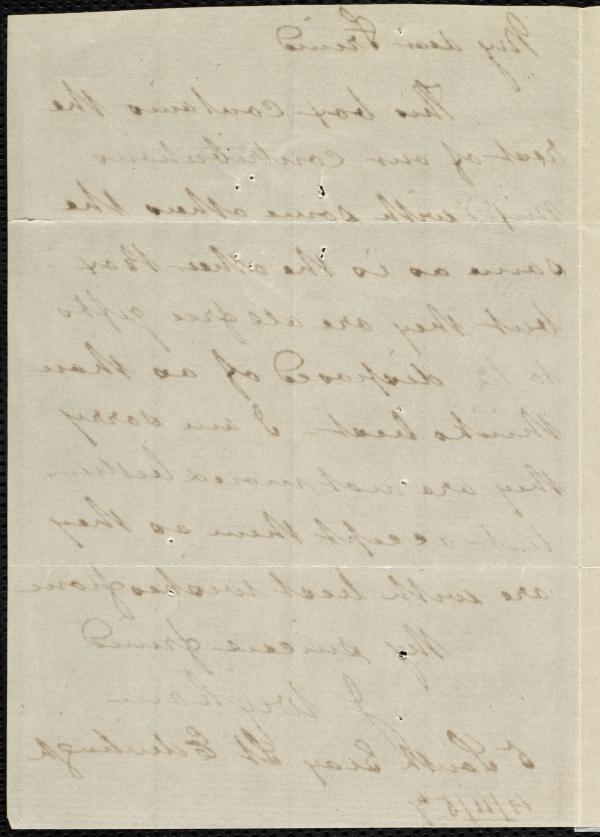 My dear Friend
This box contains the
rest of our contributions
with some others the
same as is the other Box
but they are all free gifts
to be disposed of as thou
thinks best I am sorry
they are not more better
but accept them as they
are with best wishes from
thy sincere friend
J Wigham
5 South Gray St Edinburgh